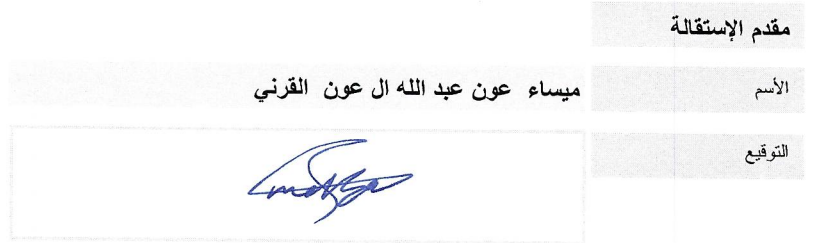 مقدم الإستقالة
الأسم ميساء عون عبد الله ال عون القرني
التوقيع